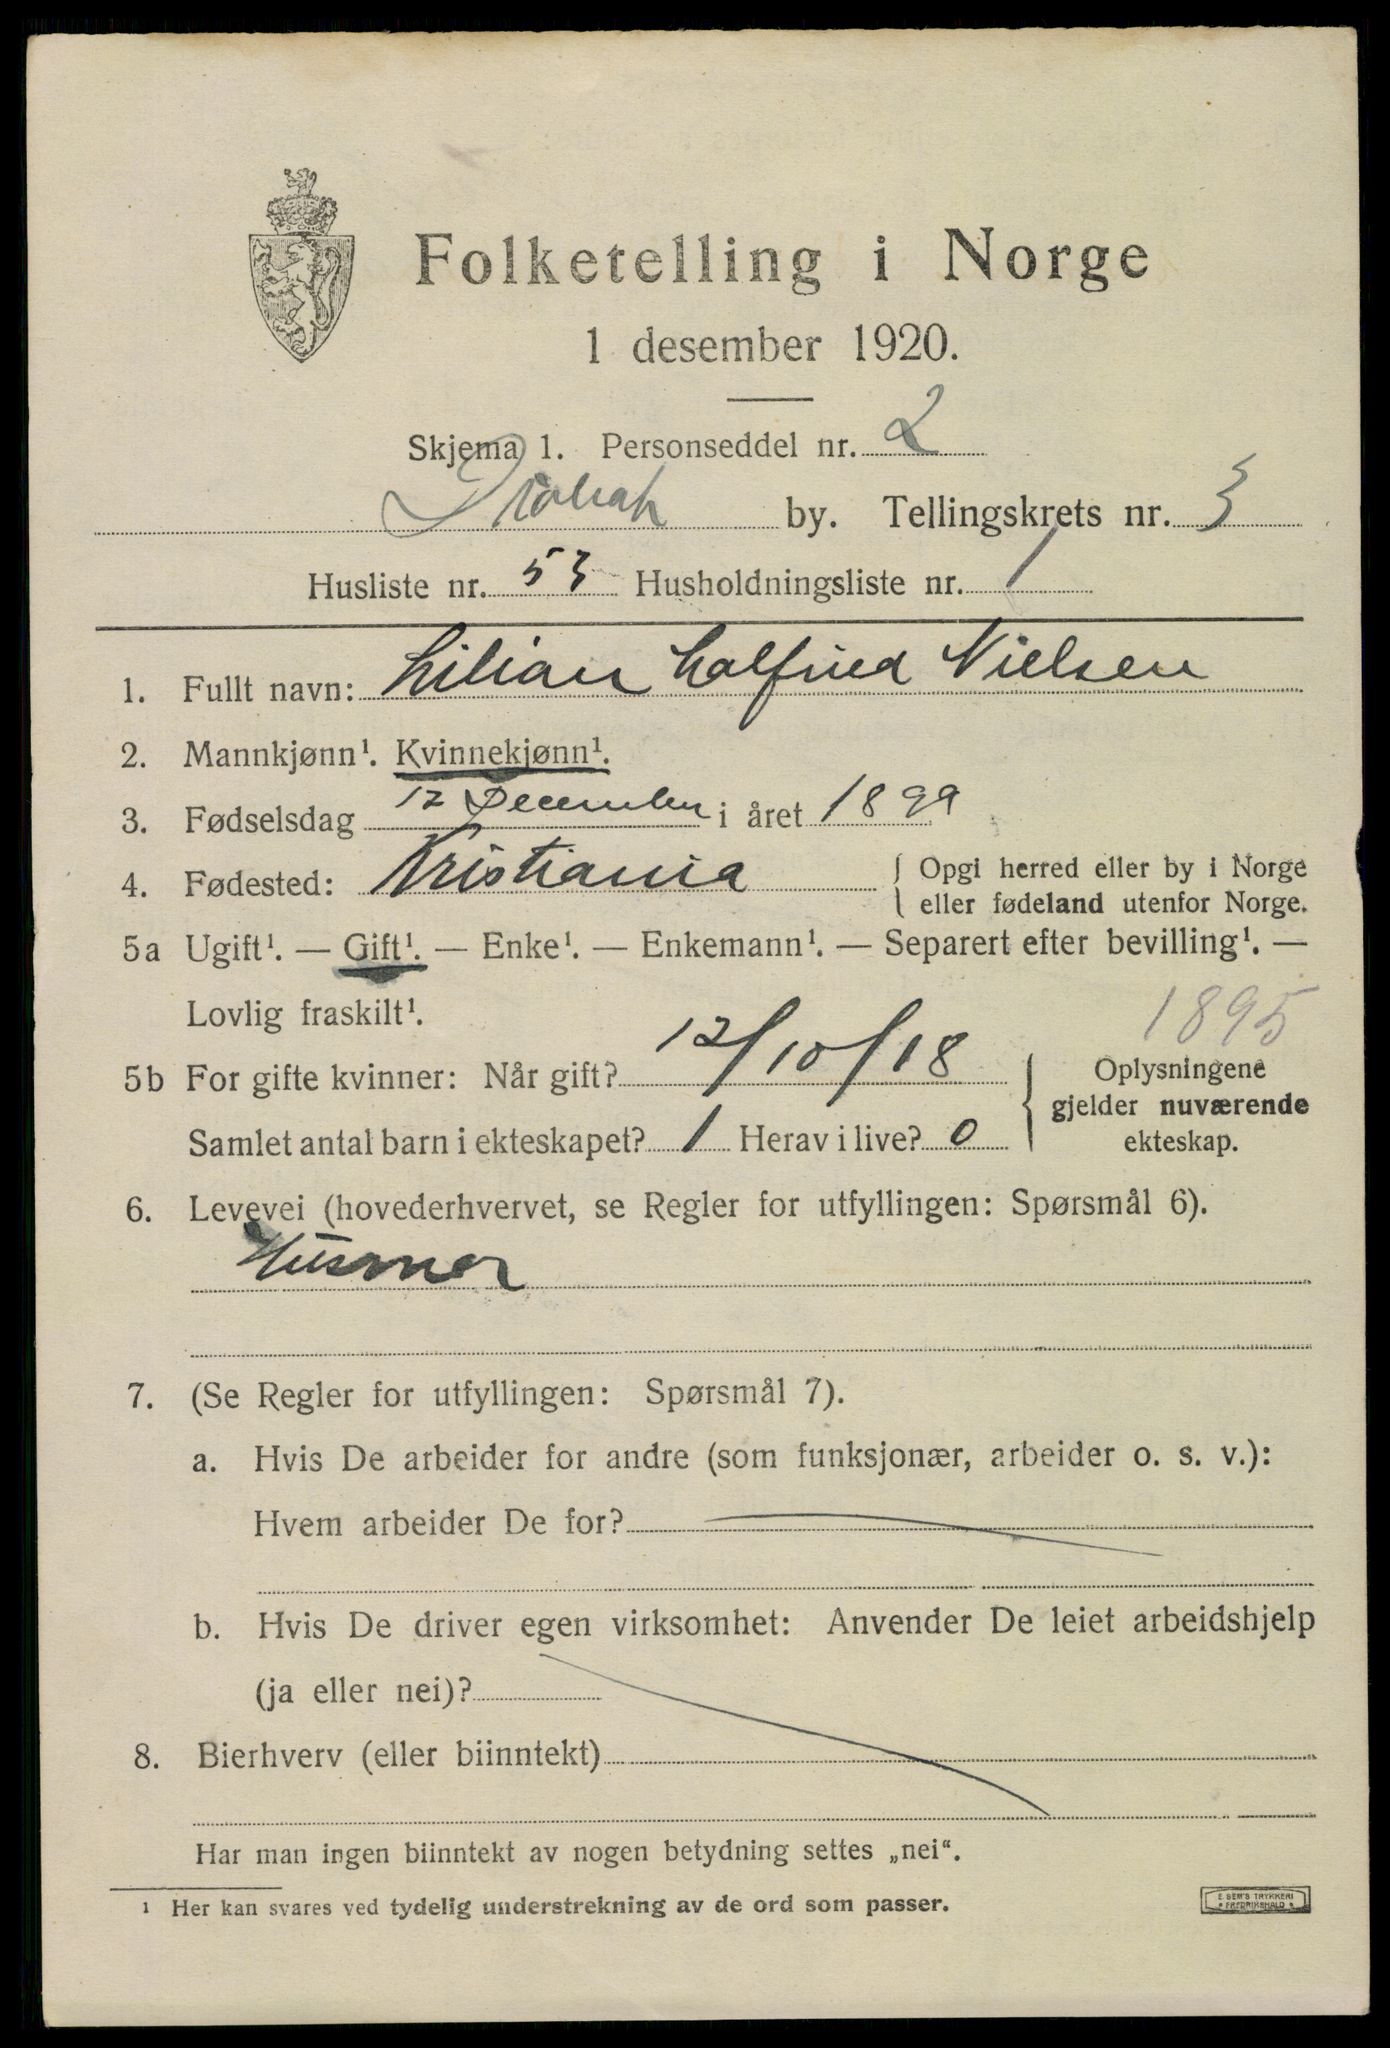 Folketelling i Norge
1 desember 1920.
Skjema 1. Personseddel nr. 2
Drøbak by. Tellingskrets nr. 3
Husliste nr. 53 Husholdningsliste nr. 1
1. Fullt navn: Lilian Nielsen
2. Mannkjønn¹. Kvinnekjønn¹.
3. Fødselsdag 12 December i året 1899
4. Fødested: Kristiania { Opgi herred eller by i Norge
eller fødeland utenfor Norge.
5a Ugift¹. — Gift¹. — Enke¹. — Enkemann¹. — Separert efter bevilling¹. —
Lovlig fraskilt¹.
1895
5b For gifte kvinner: Når gift? 12/10/18
Samlet antal barn i ekteskapet? 1 Herav i live? 0
{ Oplysningene
gjelder nuværende
ekteskap.
6. Levevei (hovederhvervet, se Regler for utfyllingen: Spørsmål 6).
Husmor
7. (Se Regler for utfyllingen: Spørsmål 7).
a. Hvis De arbeider for andre (som funksjonær, arbeider o. s. v.):
Hvem arbeider De for?
b. Hvis De driver egen virksomhet: Anvender De leiet arbeidshjelp
(ja eller nei)?
8. Bierhverv (eller biinntekt)
Har man ingen biinntekt av nogen betydning settes „nei“.
¹ Her kan svares ved tydelig understrekning av de ord som passer.
E. SEM'S TRYKKERI
FREDRIKSHALD